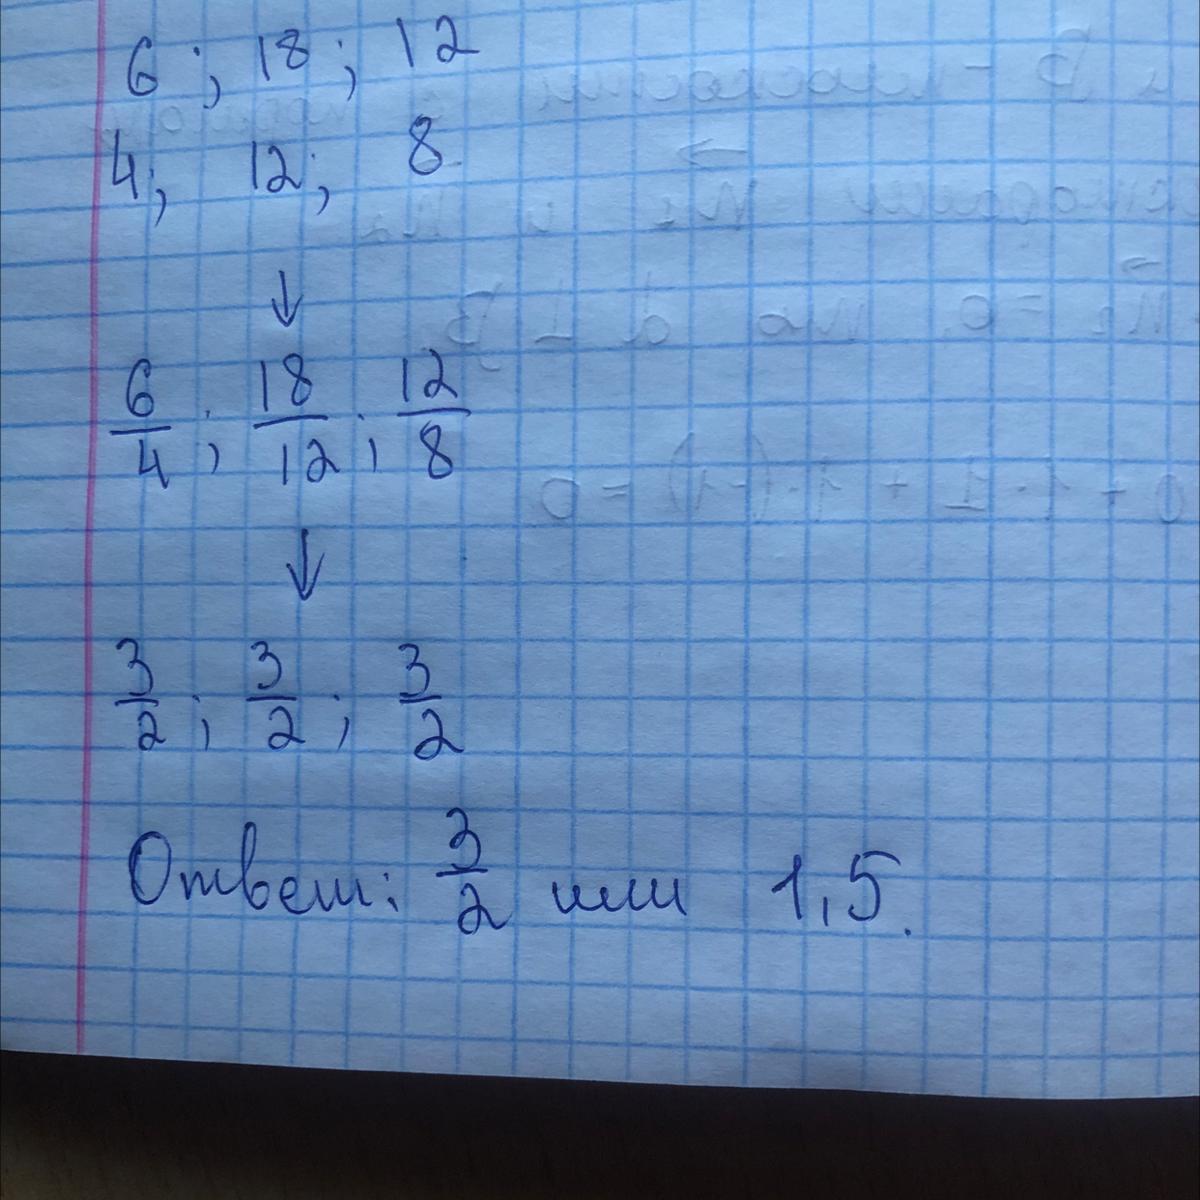 6 ; 18 ; 12
4; 12; 8
↓
6/4 ; 18/12 ; 12/8
↓
3/2 ; 3/2 ; 3/2
Ответ: 3/2 или 1,5.